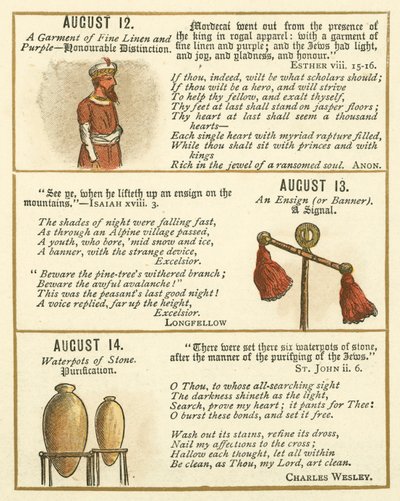 AUGUST 12.
A Garment of Fine Linen and
Purple—Honourable Distinction.
Mordecai went out from the presence of
the king in royal apparel: with a garment of
fine linen and purple; and the Jews had light,
and joy, and gladness, and honour."
ESTHER viii. 15-16.
If thou, indeed, wilt be what scholars should;
If thou wilt be a hero, and will strive
To help thy fellow, and exalt thyself,
Thy feet at last shall stand on jasper floors;
Thy heart at last shall seem a thousand
hearts—
Each single heart with myriad rapture filled,
While thou shalt sit with princes and with
kings
Rich in the jewel of a ransomed soul. ANON.
"See ye, when he lifteth up an ensign on the
mountains."—ISAIAH xviii. 3.
The shades of night were falling fast,
As through an Alpine village passed,
A youth, who bore, 'mid snow and ice,
A banner, with the strange device,
Excelsior.
"Beware the pine-tree's withered branch;
Beware the awful avalanche!"
This was the peasant's last good night!
A voice replied, far up the height,
Excelsior.
LONGFELLOW
AUGUST 13.
An Ensign (or Banner).
A Signal.
AUGUST 14.
Waterpots of Stone.
Purification.
"There were set there six waterpots of stone,
after the manner of the purifying of the Jews."
ST. JOHN ii. 6.
O Thou, to whose all-searching sight
The darkness shineth as the light,
Search, prove my heart; it pants for Thee:
O burst these bonds, and set it free.
Wash out its stains, refine its dross,
Nail my affections to the cross;
Hallow each thought, let all within
Be clean, as Thou, my Lord, art clean.
CHARLES WESLEY.